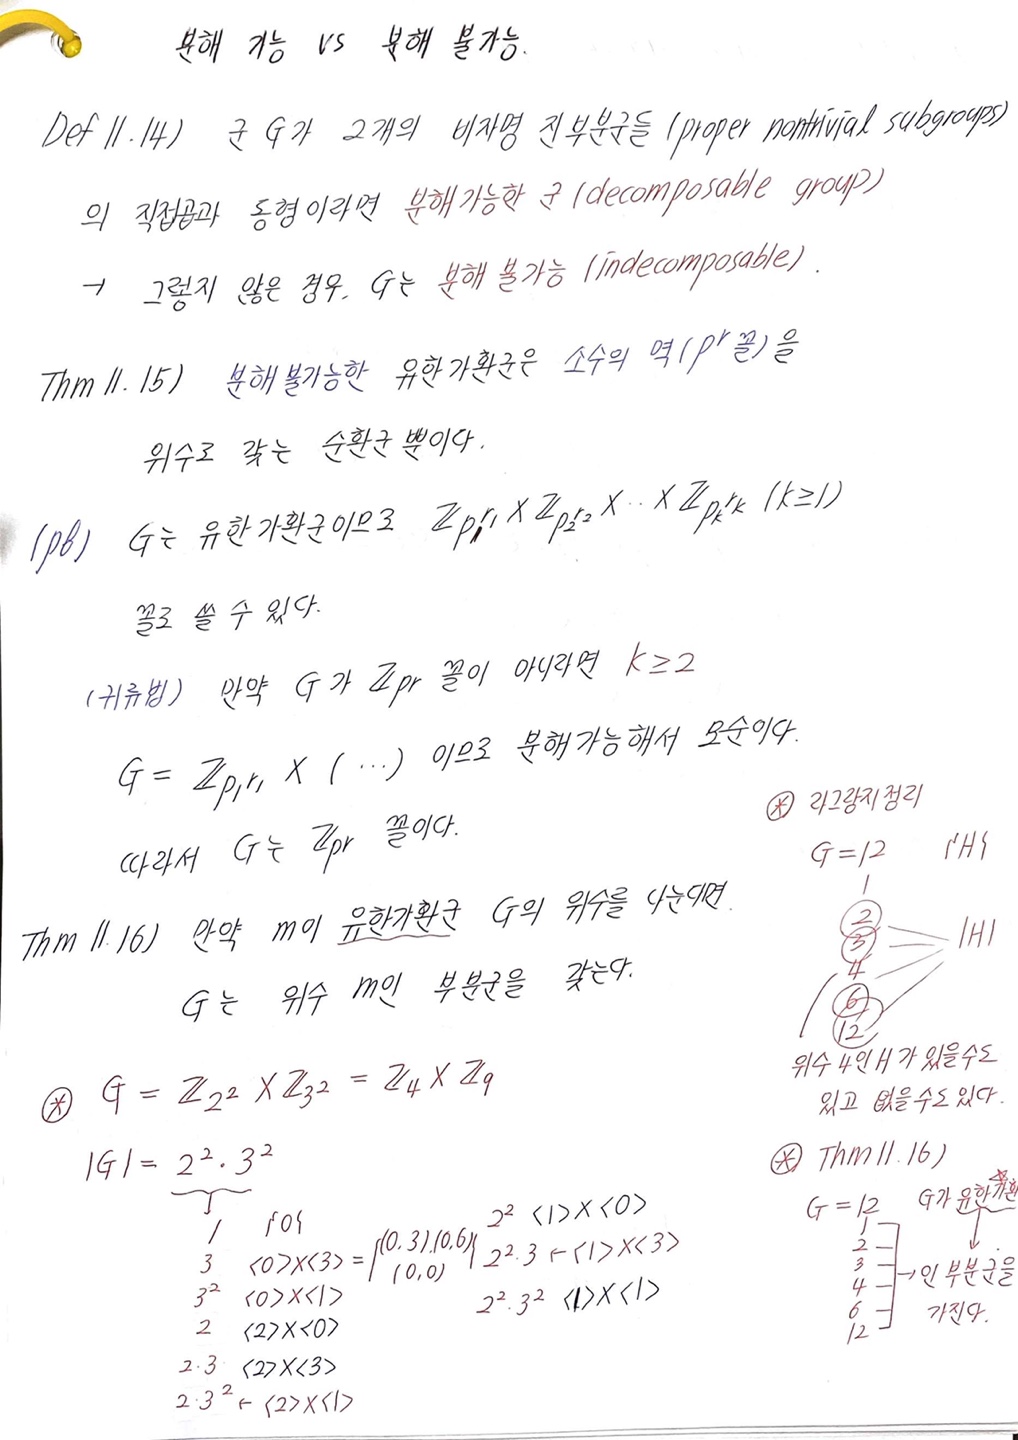 분해 가능 vs 분해 불가능.
Def 11.14) 군 G가 2개의 비자명 진부분군들 (proper nontrivial subgroups)
의 직접곱과 동형이라면 분해가능한 군 (decomposable group)
→ 그렇지 않은 경우, G는 분해 불가능 (indecomposable).
Thm 11.15) 분해불가능한 유한가환군은 소수의 멱(p^r 꼴)을
위수로 갖는 순환군 뿐이다.
(pf) G는 유한가환군이므로 ℤ_{p₁^{r₁}} × ℤ_{p₂^{r₂}} × ·· × ℤ_{p_k^{r_k}} (k≥1)
꼴로 쓸 수 있다.
(귀류법) 만약 G가 ℤ_{p^r} 꼴이 아니라면 k≥2
G = ℤ_{p₁^{r₁}} × (···) 이므로 분해가능해서 모순이다.
따라서 G는 ℤ_{p^r} 꼴이다.
Thm 11.16) 만약 m이 유한가환군 G의 위수를 나눈다면.
G는 위수 m인 부분군을 갖는다.
⊛ G = ℤ_{2²} × ℤ_{3²} = ℤ₄ × ℤ₉
|G| = 2²·3²
1 {0}
3 <0>×<3> = {(0,3),(0,6) (0,0)}
3² <0>×<1>
2 <2>×<0>
2·3 <2>×<3>
2·3² ← <2>×<1>
2² <1>×<0>
2²·3 ← <1>×<3>
2²·3² <1>×<1>
⊛ 라그랑지정리
G=12 {H}
1
2
3
4
6
12
|H|
위수 4인 H가 있을수도
있고 없을수도있다.
⊛ Thm 11.16)
G=12 G가 유한가환
1
2
3
4
6
12
→ 인 부분군을
가진다.